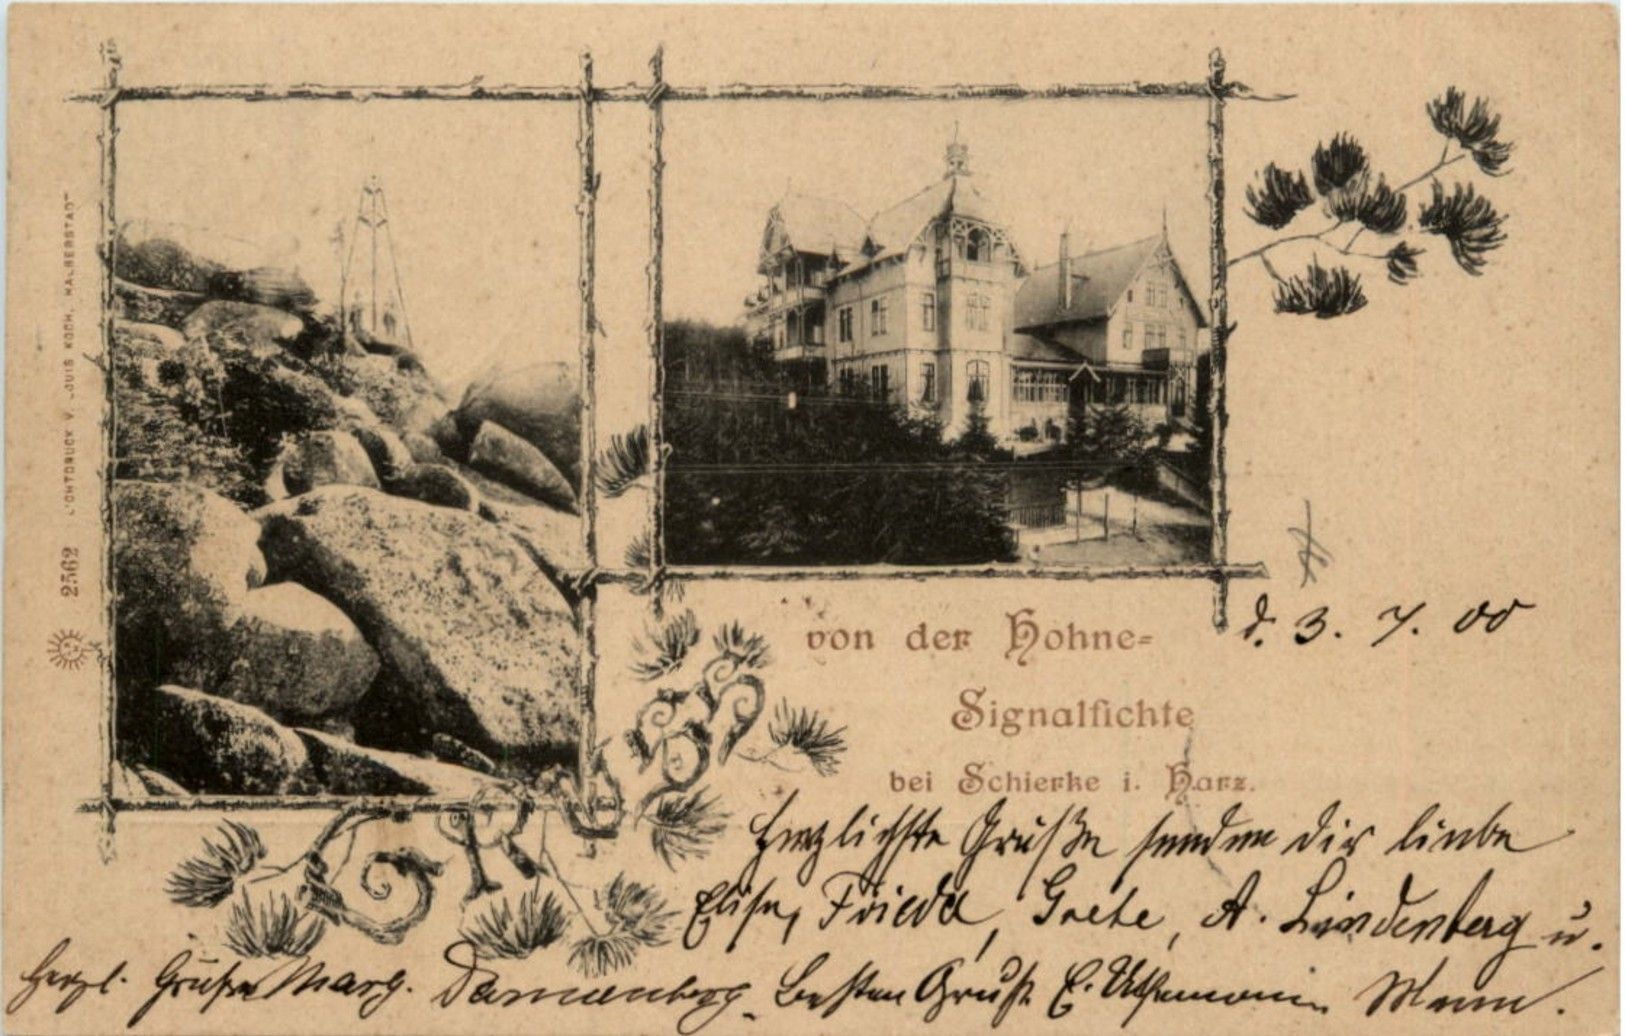 2562 LICHTDRUCK V. LOUIS KOCH, HALBERSTADT
GRUSS
von der Hohne-
Signalfichte
bei Schierke i. Harz.
d. 3. 7. 00
Herzlichste Grüße senden dir liebe
Elise, Frieda, Grete, A. Lindenberg u.
Herzl. Grüße Marg. Dannenberg. Besten Gruß E. Mann.